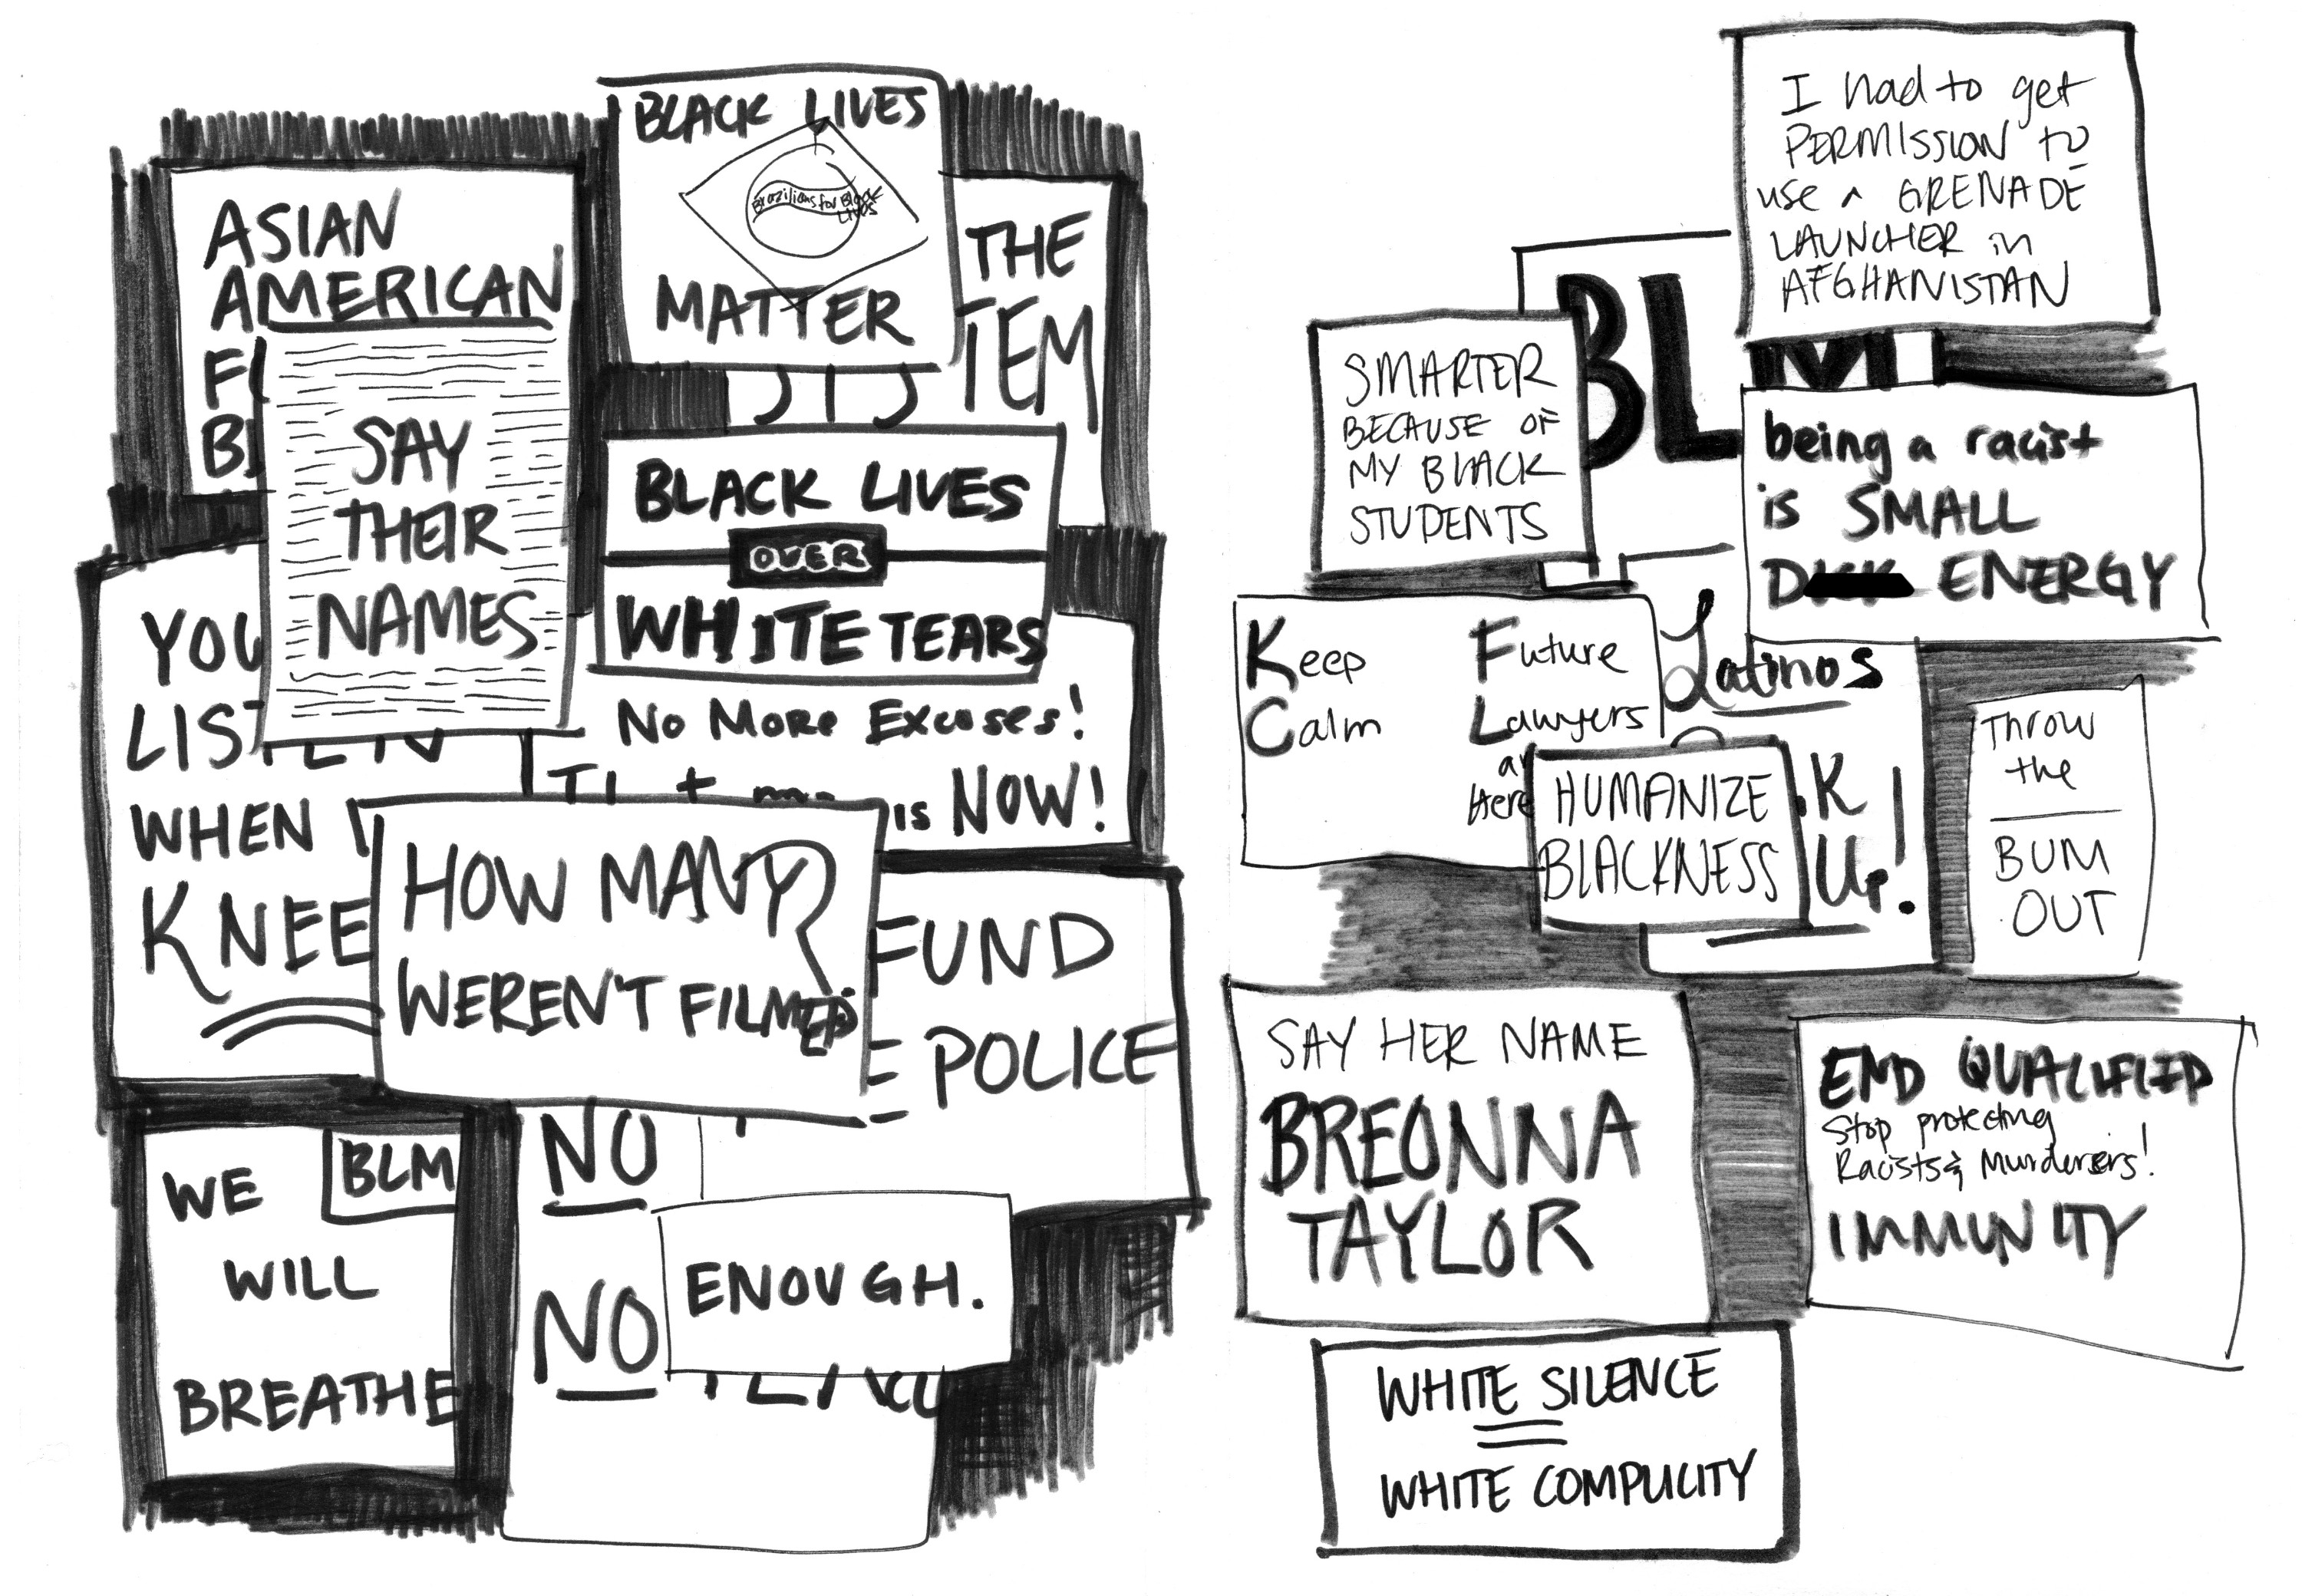 BLACK LIVES
Brazilians for Black
Lives
MATTER
ASIAN
AMERICAN
SAY
THEIR
NAMES
THE
TEM
BLACK LIVES
OVER
WHITE TEARS
YOU
LISTEN
WHEN
KNEE
No More Excuses!
is NOW!
HOW MANY
WEREN'T FILMED?
FUND
POLICE
WE
BLM
WILL
BREATHE
NO
NO
ENOUGH.
I had to get
PERMISSION to
use a GRENADE
LAUNCHER in
AFGHANISTAN
BLM
SMARTER
BECAUSE OF
MY BLACK
STUDENTS
being a racist
is SMALL
D ENERGY
Keep Future
Calm Lawyers
Here
Latinos
K
Up!
HUMANIZE
BLACKNESS
Throw
the
BUM
OUT
SAY HER NAME
BREONNA
TAYLOR
END QUALIFIED
Stop protecting
Racists & Murderers!
IMMUNITY
WHITE SILENCE
=
WHITE COMPLICITY